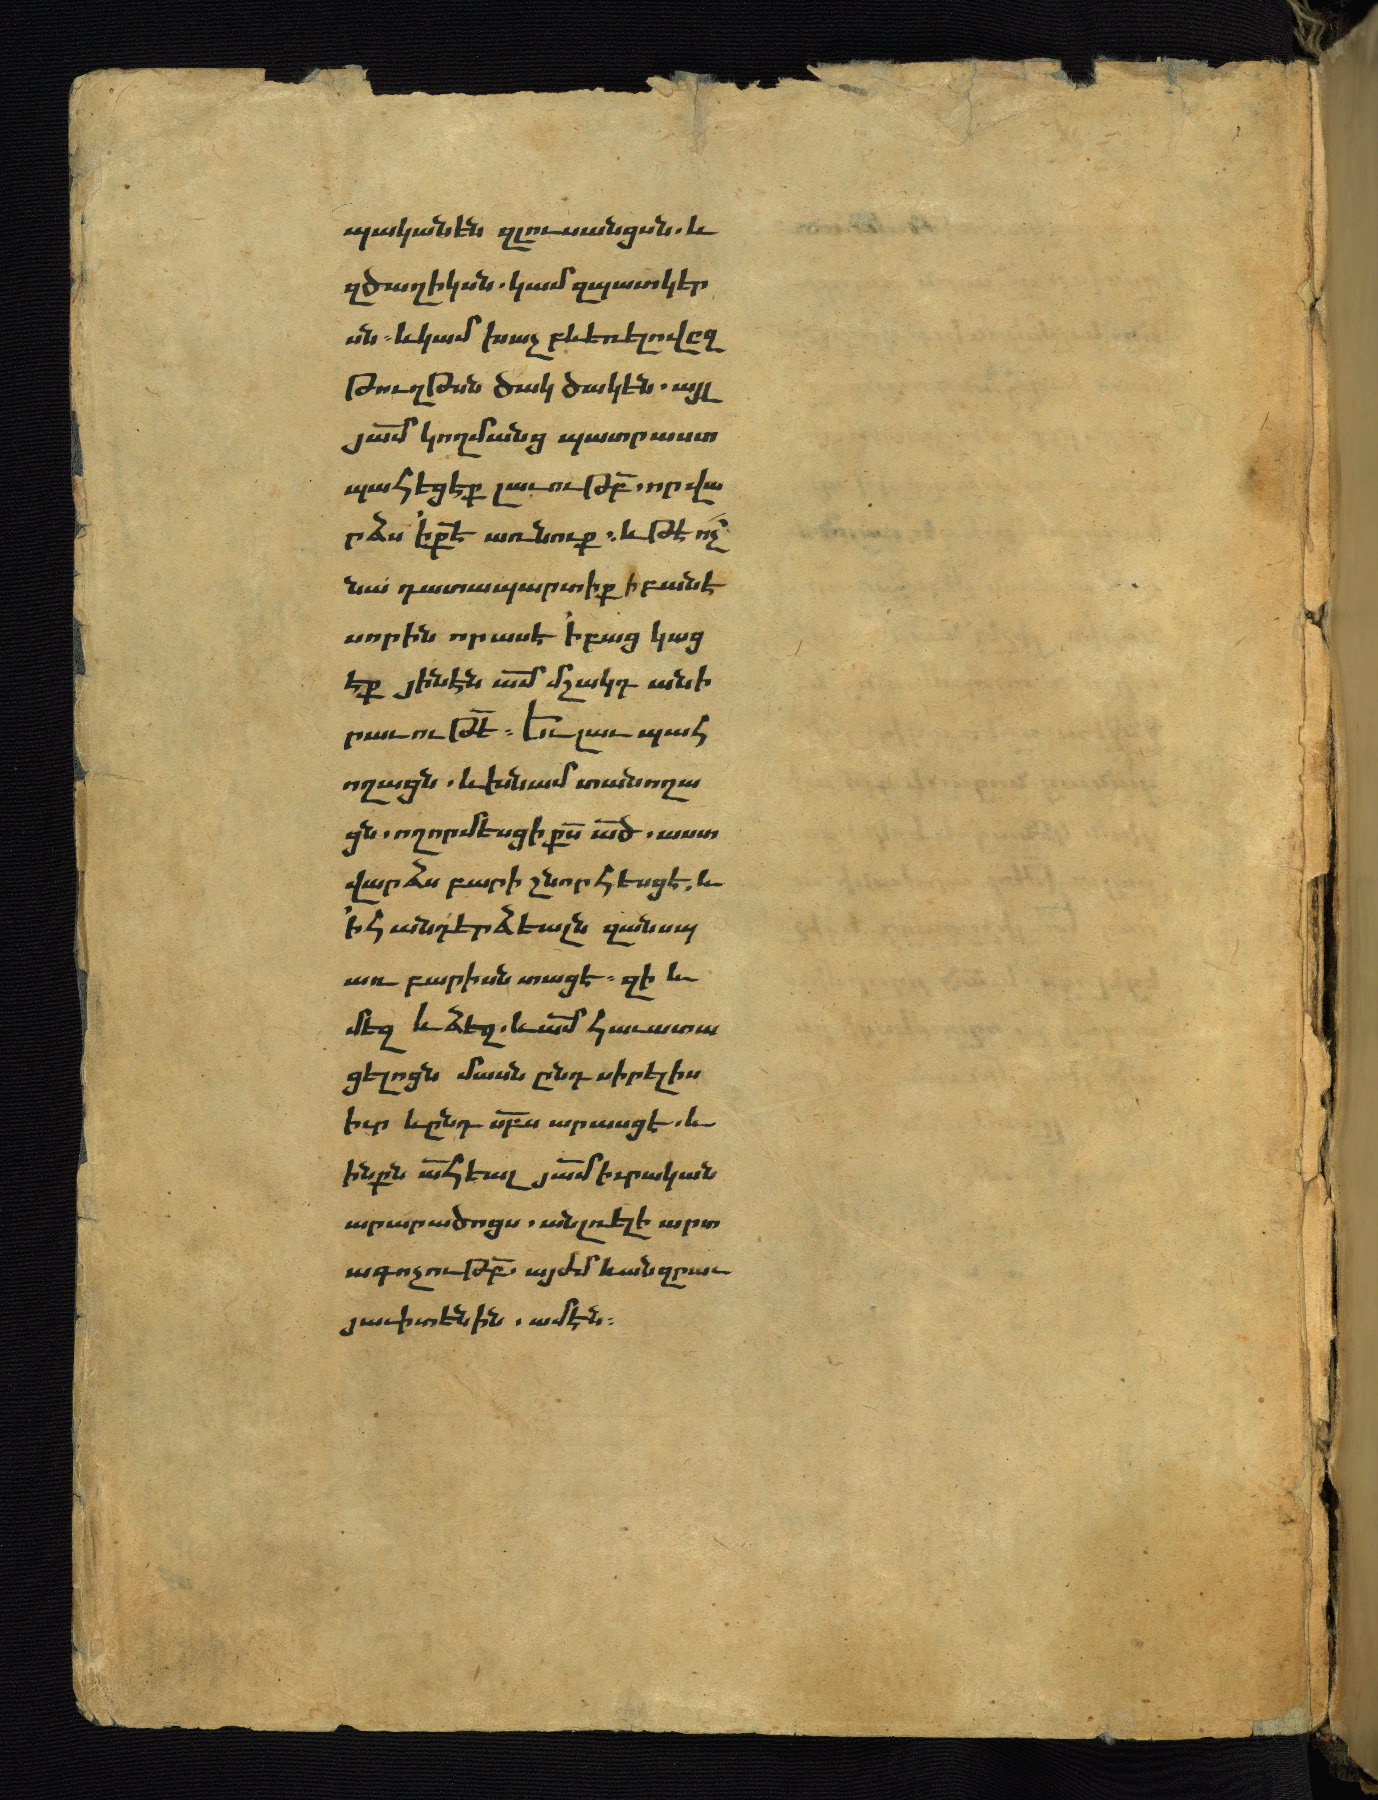 պականեն զլուսանցսն. և
զծաղիկսն. կամ զպատկեր
սն։ և կամ խաչ բևեռելով ըզ
թուղթսն ծակ ծակեն. այլ
յա՟մ կողմանց պատրաստ
պահեցէք լաւութբ՟. որ վա
րձս ի ք՟է առնուք։ և թէ ոչ
նա դատապարտիք ի բանէ
սորին որ ասէ ի բաց կաց
էք յինէն ա՟մ մշակդ անի
րաւութե՟։ Եւ լաւ պահ
ողացն. և խնամ տանողա
ցն. ողորմեսցի ք՟ս ա՟ծ. աստ
վարձս բարի շնորհեսցէ, և
ի հանդերձեալն զանսպ
առ բարիսն տացէ։ զի և
մեզ և ձեզ. և ա՟մ հաւատա
ցելոցն մասն ընդ սիրելիս
իւր և ընդ ս՟բս արասցէ. և
ինքն ա՟հեալ յա՟մ իւրական
արարածոցս. անլռելի արտ
ագոչութբ՟. այժմ և անզրաւ
յաւիտենին. ամէն։